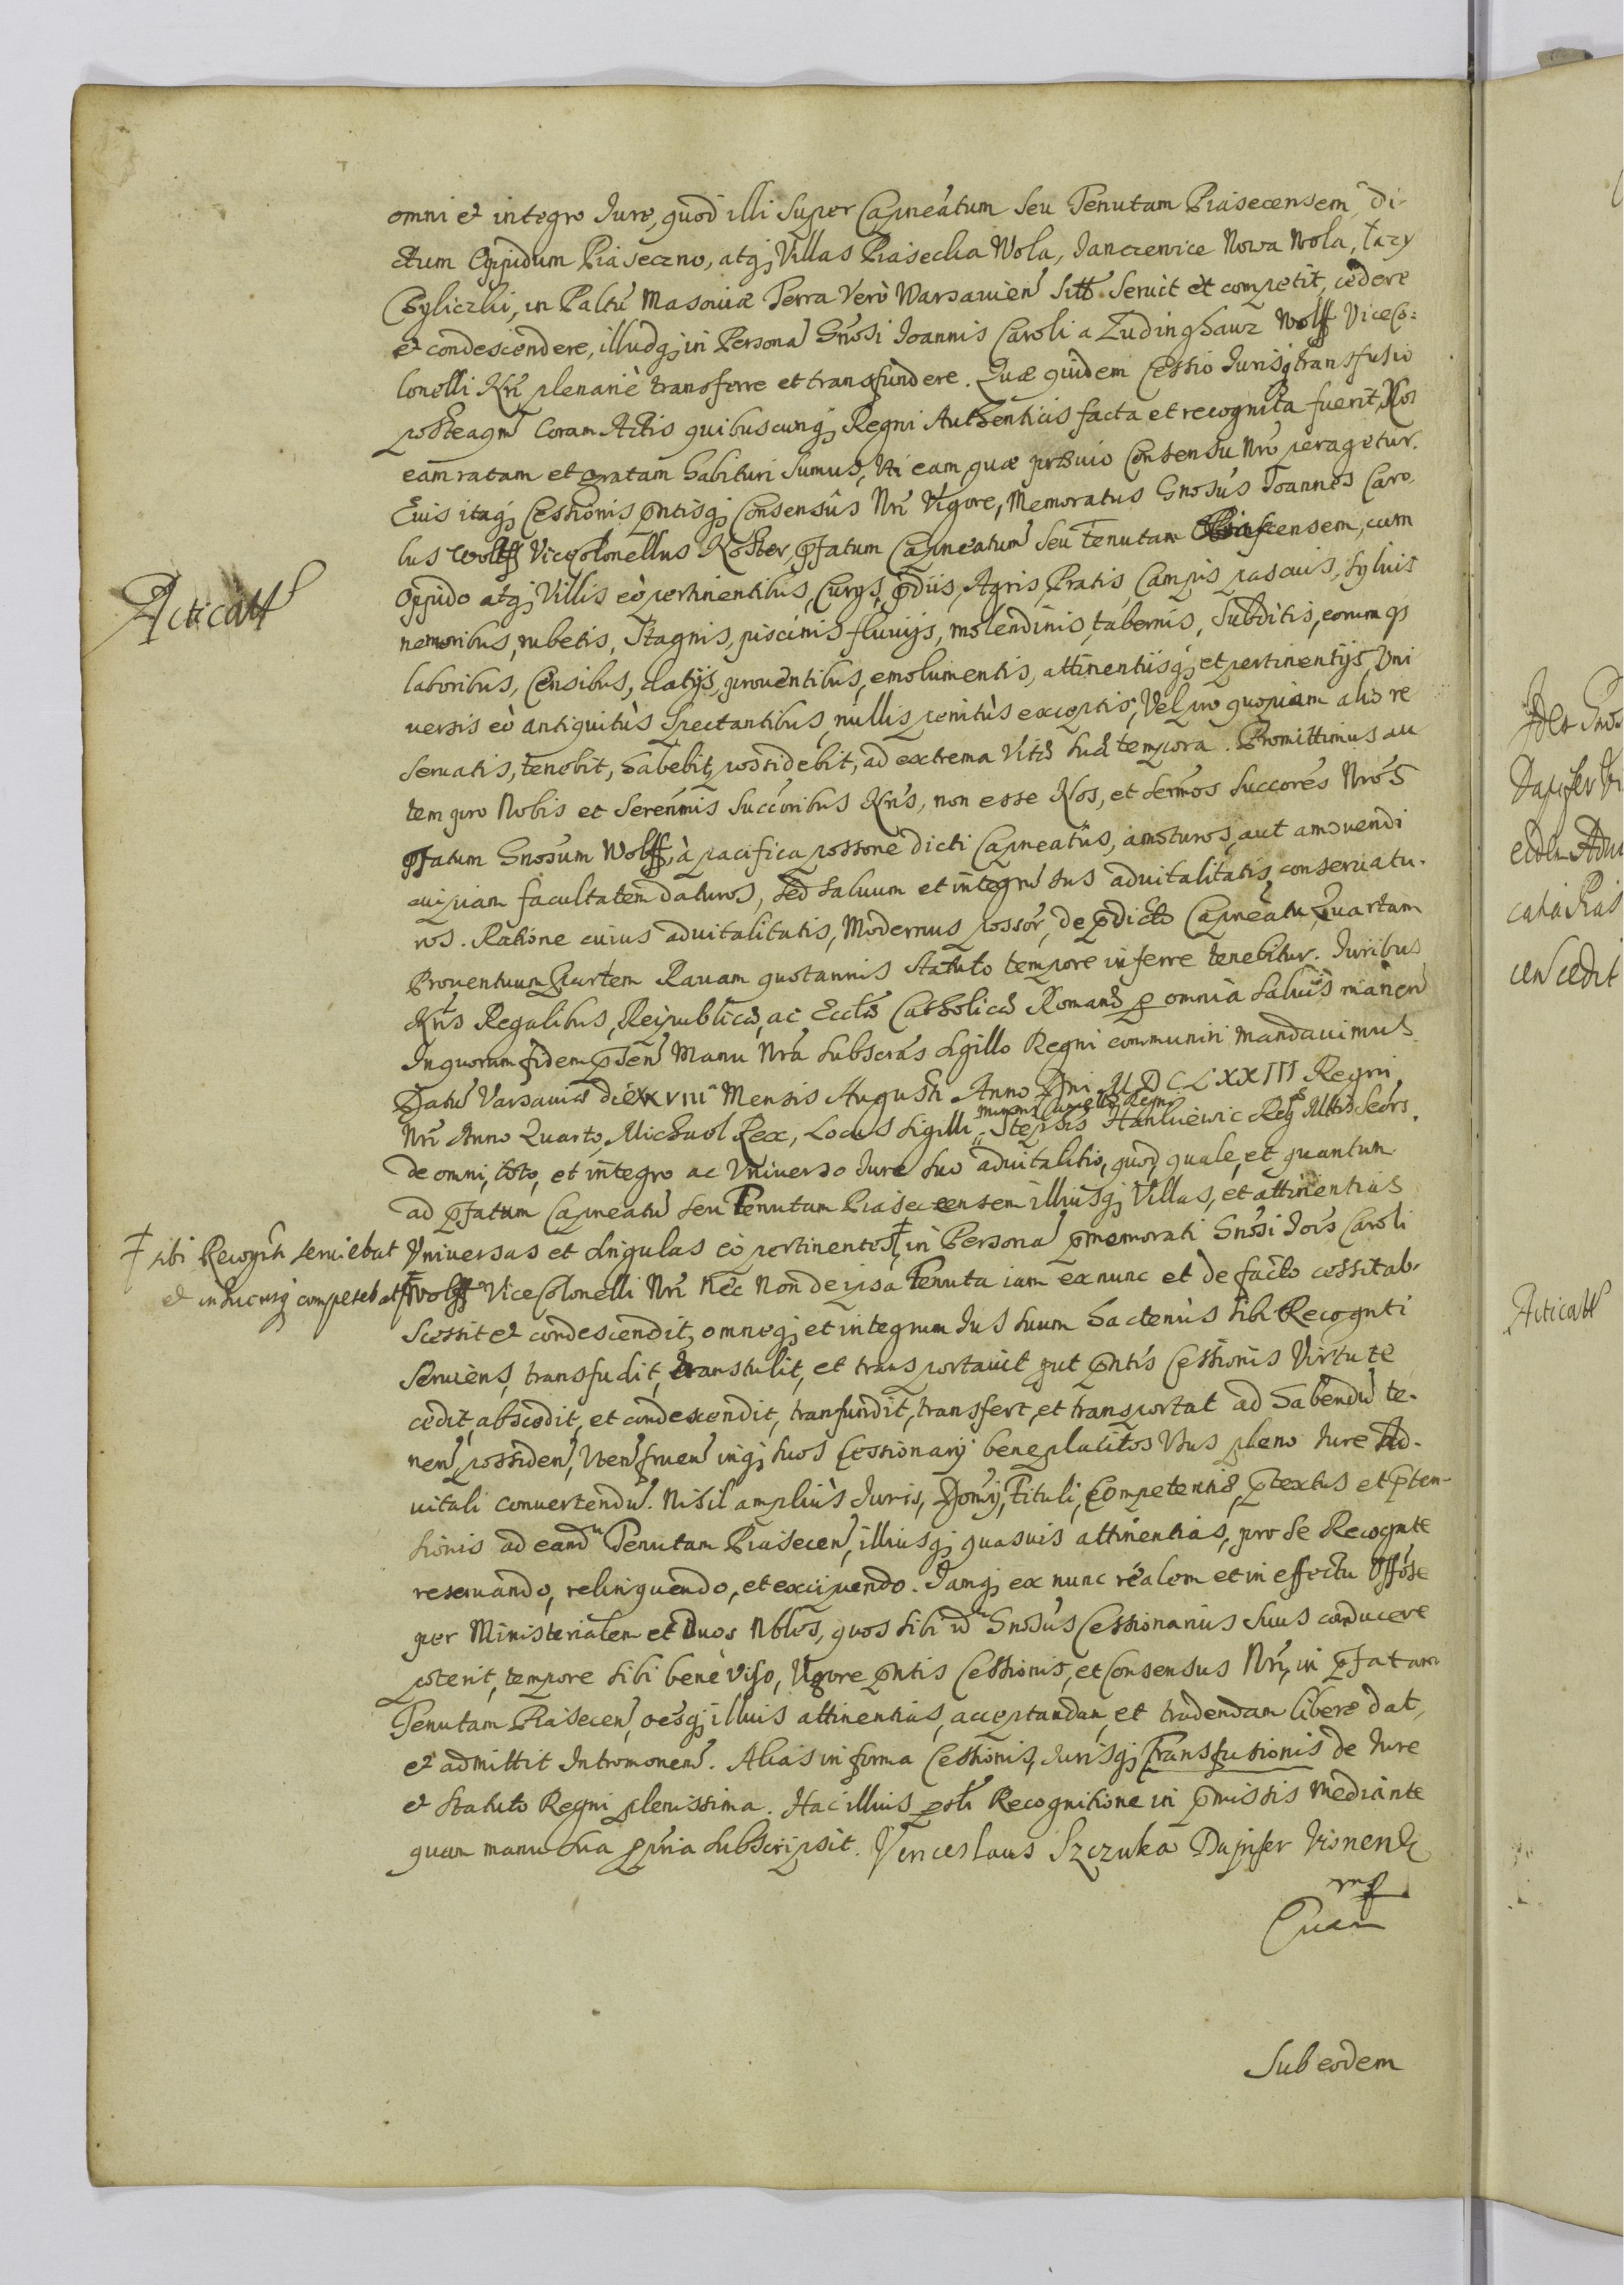 omni et integro Jure, quod illi super Capneatum seu Tenutam Piasecensem, di-
ctum Oppidum Piaseczno, atq; Villas Piasecka Wola, Janczewice Nowa Wola, Łazy
Bogliczki, in Paltu Masoviæ Terra vero Varsavien sitt. seruit et competit, cedere
et condescendere, illudq; in Persona Gnosi Joannis Caroli a Ludinghauz Wolff ViceCo:
lonelli Nri plenariè transferre et transfundere. Quæ quidem Cessio Jurisq; transfusio
posteaqm coram Actis quibuscunq; Regni Authenticis facta et recognita fuerit, Nos
eam ratam et gratam habituri sumus, uti eam, quæ præuio Consensu Nro peragetur.
Cuius itaq; Cessionis pntisq; Consensûs Nri Vigore, Memoratus Gnosus Joannes Caro-
lus Wolff ViceColonellus Noster, pfatum Capneatum seu Tenutam Piasecensem, cum
Oppido atq; Villis eò pertinentibus, Curys, pdiis, Agris, Pratis, Campis, pascuis, syluis
nemoribus, rubetis, Stagnis, piscinis, fluuijs, molendinis, tabernis, Subditis, eorumq;
laboribus, Censibus, datijs, prouentibus, emolumentis, attinentiisq; et pertinentijs Vni
uersis eò antiquitùs Spectantibus, nullis penitùs exceptis, Vel pro quopiam alio re
seruatis, tenebit, habebit, possidebit, ad extrema Vitæ suæ tempora. Promittimus au
tem pro Nobis et Serenmis Succoribus Nris, non esse Nos, et Sermos Succores Nros
pfatum Gnosum Wolff, à pacifica possone dicti Capneatus, amoturos, aut amouendi
cuipiam facultatem daturos, sed saluum et integru Jus aduitalitatis, conseruatu-
ros. Ratione cuius aduitalitatis, Modernus possor, de pdicto Capneatu, Quartam
Prouentuum Partem Ravam quotannis Statuto tempore inferre tenebitur. Juribus
Nris Regalibus, Reipublicæ, ac Ecclæ Catholicæ Romanæ p omnia saluis manen
In quorum fidem psen Manu Nra subscras sigillo Regni communiri mandauimus.
Datu Varsauiæ die XXVIII Mensis Augusti Anno Dni MDCLXXIII Regni
Nri Anno Quarto, Michael Rex, Locus Sigilli Stephs Hankiewic Reg Mttis Secrs.
de omni, toto, et integro ac Vniuerso Jure suo aduitalitio, quod, quale, et quantum
ad pfatum Capneatu seu Tenutam Piasecensem illiusq; Villas, et attinentias
‡ sibi Recognti seruiebat Vniuersas et singulas eò pertinentes ‡, in Persona pmemorati Gnosi Jois Caroli
et in hucusq; competebat ‡ Wolff ViceColonelli Nri nec non de ipsa Tenuta iam ex nunc et de facto cessit ab-
scessit et condescendit, omneq; et integrum Jus suum hactenùs sibi Recognti
seruiens, transfudit, transtulit, et transportauit put pntis Cessionis Virtute
cedit, abscedit, et condescendit, transfundit, transfert, et transportat ad habendu te-
nen, possiden, Uten, fruen inq; suos Cessionarij beneplacitos Usus pleno Jure Ad-
uitali conuertendu. Nihil ampliùs Juris, Domij, Tituli, Competentiæ, ptextus et pten-
sionis ad eand Tenutam Piasecen, illiusq; quasuis attinentias, pro se Recognte
reseruando, relinquendo, et excipiendo. Jamq; ex nunc realem et in effectu Offose
per Ministerialem et Duos Nbles, quos sibi id Gnosus Cessionarius suus conducere
poterit, tempore sibi bene viso, Vigore pntis Cessionis, et Consensus Nri, in pfatam
Tenutam Piasecen, oesq; illius attinentias, acceptandam, et tradendam libere dat,
et admittit Intromonem. Alias in forma Cessionis, Jurisq; Transfusionis de Jure
et Statuto Regni plenissima. Hac illius psli Recognitione in pmissis mediante
quam manu sua ppria subscripsit. Venceslaus Szczuka Dapifer Visnensis
mp
Acticatt
Sub eodem
Acticatt